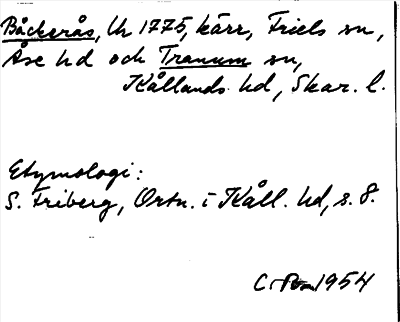 Båckerås, Uh 1775, kärr, Friels sn,
Åse hd och Tranum sn,
Kållands hd, Skar. l.
Etymologi:
S. Friberg, Ortn. i Kåll. hd, s. 8.
1954